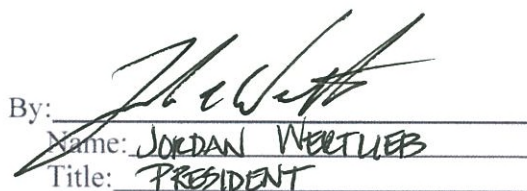 By:
Name: JORDAN WERTLIEB
Title: PRESIDENT